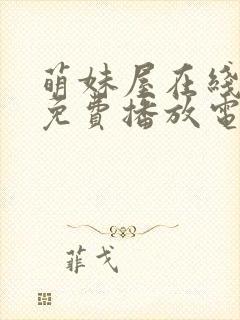 萌妹屋在綫
免費播放電
菲戈